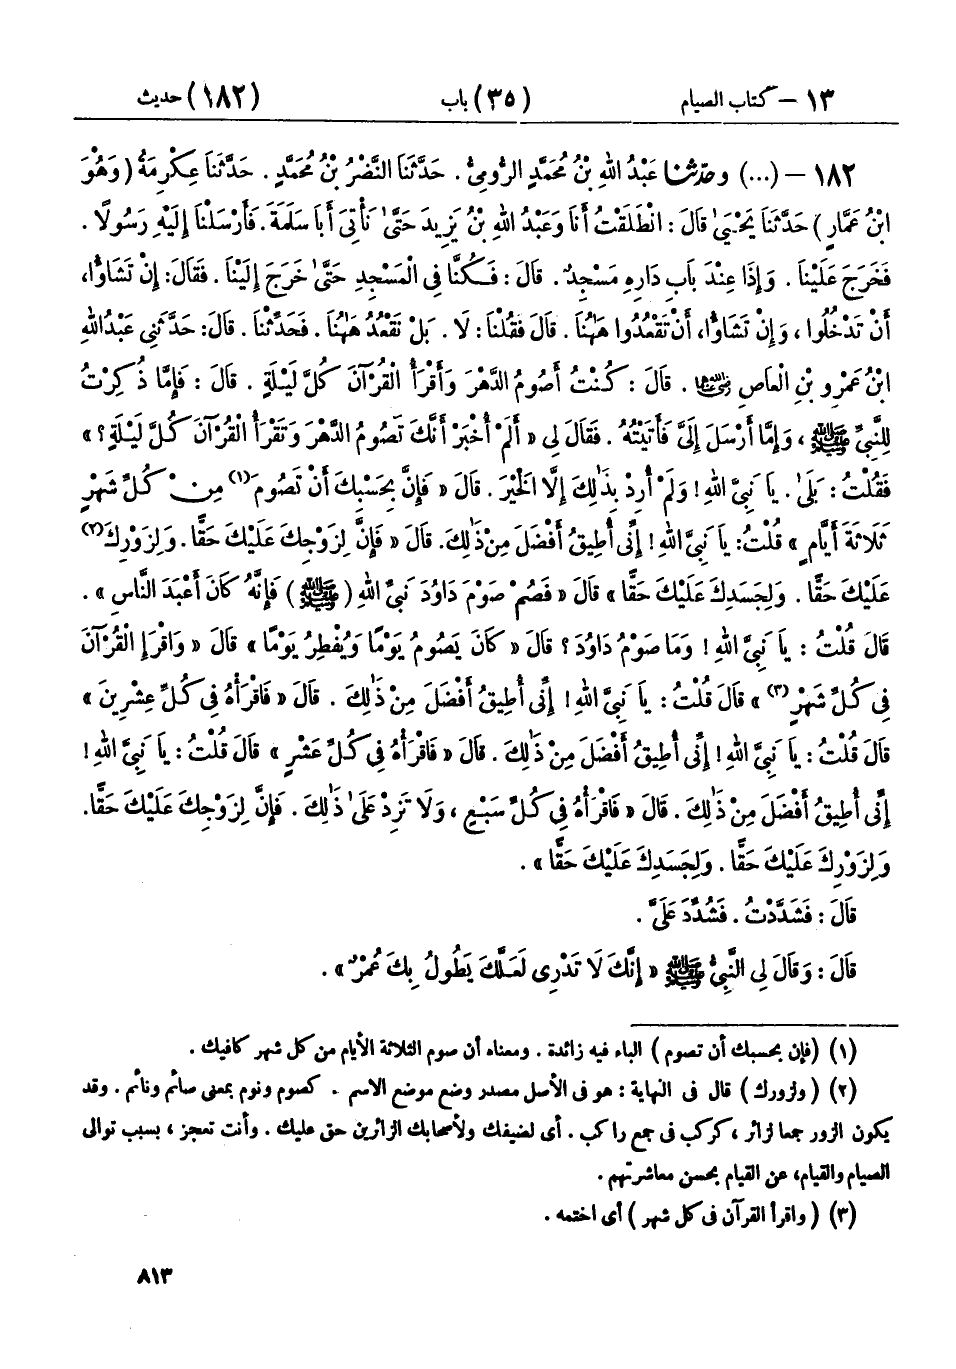 ١٣ – كتاب الصيام (٣٥) باب (١٨٢) حديث
١٨٢ – (...) وحَدَّثَنَا عَبْدُ اللهِ بْنُ مُحَمَّدٍ الرُّومِيُّ . حَدَّثَنَا النَّضْرُ بْنُ مُحَمَّدٍ . حَدَّثَنَا عِكْرِمَةُ ( وَهُوَ
ابْنُ عَمَّارٍ ) حَدَّثَنَا يَحْيَىٰ قَالَ : انْطَلَقْتُ أَنَا وَعَبْدُ اللهِ بْنُ يَزِيدَ حَتَّىٰ نَأْتِىَ أَبَا سَلَمَةَ . فَأَرْسَلْنَا إِلَيْهِ رَسُولًا .
فَخَرَجَ عَلَيْنَا . وَإِذَا عِنْدَ بَابِ دَارِهِ مَسْجِدٌ . قَالَ : فَكُنَّا فِى الْمَسْجِدِ حَتَّىٰ خَرَجَ إِلَيْنَا . فَقَالَ : إِنْ تَشَاؤُا،
أَنْ تَدْخُلُوا ، وَإِنْ تَشَاؤُا، أَنْ تَقْعُدُوا هٰهُنَا . قَالَ فَقُلْنَا : لَا . بَلْ نَقْعُدُ هٰهُنَا . فَحَدِّثْنَا . قَالَ : حَدَّثَنِى عَبْدُ اللهِ
ابْنُ عَمْرِو بْنِ الْعَاصِ رضي الله عنهما . قَالَ : كُنْتُ أَصُومُ الدَّهْرَ وَأَقْرَأُ الْقُرْآنَ كُلَّ لَيْلَةٍ . قَالَ : فَإِمَّا ذُكِرْتُ
لِلنَّبِىِّ ﷺ ، وَإِمَّا أَرْسَلَ إِلَىَّ فَأَتَيْتُهُ . فَقَالَ لِى « أَلَمْ أُخْبَرْ أَنَّكَ تَصُومُ الدَّهْرَ وَتَقْرَأُ الْقُرْآنَ كُلَّ لَيْلَةٍ ؟ »
فَقُلْتُ : بَلَىٰ . يَا نَبِىَّ اللهِ ! وَلَمْ أُرِدْ بِذٰلِكَ إِلَّا الْخَيْرَ . قَالَ « فَإِنَّ بِحَسْبِكَ أَنْ تَصُومَ (١) مِنْ كُلِّ شَهْرٍ
ثَلَاثَةَ أَيَّامٍ » قُلْتُ : يَا نَبِىَّ اللهِ ! إِنِّى أُطِيقُ أَفْضَلَ مِنْ ذٰلِكَ . قَالَ « فَإِنَّ لِزَوْجِكَ عَلَيْكَ حَقًّا . وَلِزَوْرِكَ (٢)
عَلَيْكَ حَقًّا . وَلِجَسَدِكَ عَلَيْكَ حَقًّا » قَالَ « فَصُمْ صَوْمَ دَاوُدَ نَبِىِّ اللهِ ( ﷺ ) فَإِنَّهُ كَانَ أَعْبَدَ النَّاسِ » .
قَالَ قُلْتُ : يَا نَبِىَّ اللهِ ! وَمَا صَوْمُ دَاوُدَ ؟ قَالَ « كَانَ يَصُومُ يَوْمًا وَيُفْطِرُ يَوْمًا » قَالَ « وَاقْرَإِ الْقُرْآنَ
فِى كُلِّ شَهْرٍ (٣) » قَالَ قُلْتُ : يَا نَبِىَّ اللهِ ! إِنِّى أُطِيقُ أَفْضَلَ مِنْ ذٰلِكَ . قَالَ « فَاقْرَأْهُ فِى كُلِّ عِشْرِينَ »
قَالَ قُلْتُ : يَا نَبِىَّ اللهِ ! إِنِّى أُطِيقُ أَفْضَلَ مِنْ ذٰلِكَ . قَالَ « فَاقْرَأْهُ فِى كُلِّ عَشْرٍ » قَالَ قُلْتُ : يَا نَبِىَّ اللهِ !
إِنِّى أُطِيقُ أَفْضَلَ مِنْ ذٰلِكَ . قَالَ « فَاقْرَأْهُ فِى كُلِّ سَبْعٍ ، وَلَا تَزِدْ عَلَىٰ ذٰلِكَ . فَإِنَّ لِزَوْجِكَ عَلَيْكَ حَقًّا .
وَلِزَوْرِكَ عَلَيْكَ حَقًّا . وَلِجَسَدِكَ عَلَيْكَ حَقًّا » .
قَالَ : فَشَدَّدْتُ . فَشُدِّدَ عَلَىَّ .
قَالَ : وَقَالَ لِى النَّبِىُّ ﷺ « إِنَّكَ لَا تَدْرِى لَعَلَّكَ يَطُولُ بِكَ عُمْرٌ » .
(١) ( فإن بحسبك أن تصوم ) الباء فيه زائدة . ومعناه أن صوم الثلاثة الأيام من كل شهر كافيك .
(٢) ( ولزورك ) قال فى النهاية : هو فى الأصل مصدر وضع موضع الاسم . كصوم ونوم بمعنى صائم ونائم . وقد
يكون الزور جمعا لزائر ، كركب فى جمع راكب . أى لضيفك ولأصحابك الزائرين حق عليك . وأنت تعجز ، بسبب توالى
الصيام والقيام، عن القيام بحسن معاشرتهم .
(٣) ( واقرأ القرآن فى كل شهر ) أى اختمه .
٨١٣